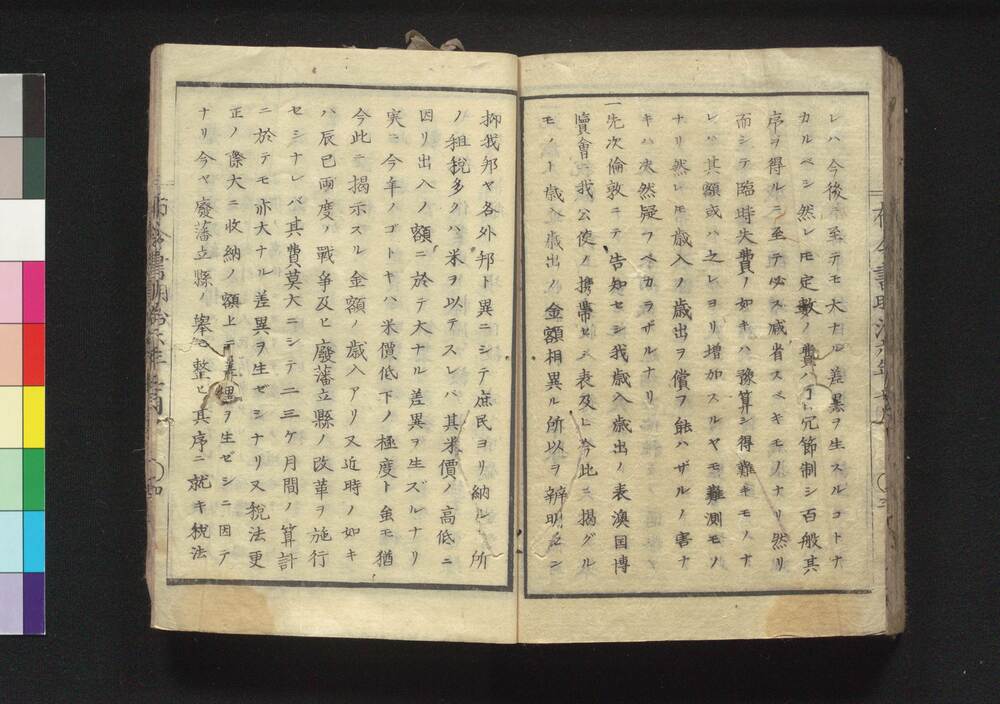 レハ今後ニ至テモ大ナル差異ヲ生スルコトナ
カルベシ然レ𪜈定數ノ費ハ冗節制シ百般其
序ヲ得ルニ至テ必ス减省スベキモノナリ然リ
而シテ臨時失費ノ如キハ豫算シ得難キモノナ
レハ其額或ハ之レヨリ増加スルヤモ難測モノ
ナリ然レ𪜈歳入ノ歳出ヲ償フ能ハザルノ害ナ
キハ决然疑フベカラザルナリ
一先次倫敦ニテ告知セシ我歳入歳出ノ表澳国博
覽會ニ我公使ノ携帶セシ表及ヒ今此ニ掲グル
モノト歳入歳出ノ金額相異ル所以ヲ辨明セン
抑我邦ヤ各外邦ト異ニシテ庶民ヨリ納ル所
ノ租税多クハ米ヲ以テスレバ其米價ノ高低ニ
因リ出入ノ額ニ於テ大ナル差異ヲ生ズルナリ
実ニ今年ノゴトキハ米價低下ノ極度ト虽モ猶
今此ニ掲示スル金額ノ歳入アリ又近時ノ如キ
ハ辰巳両度ノ戰争及ヒ廢藩立縣ノ改革ヲ施行
セシナレバ其費莫大ニシテ二三ケ月間ノ算計
ニ於テモ亦大ナル差異ヲ生ゼシナリ又税法更
正ノ際大ニ收納ノ額上ニ差異ヲ生ゼシニ因テ
ナリ今ヤ廢藩立縣ノ擧モ整ヒ其序ニ就キ税法